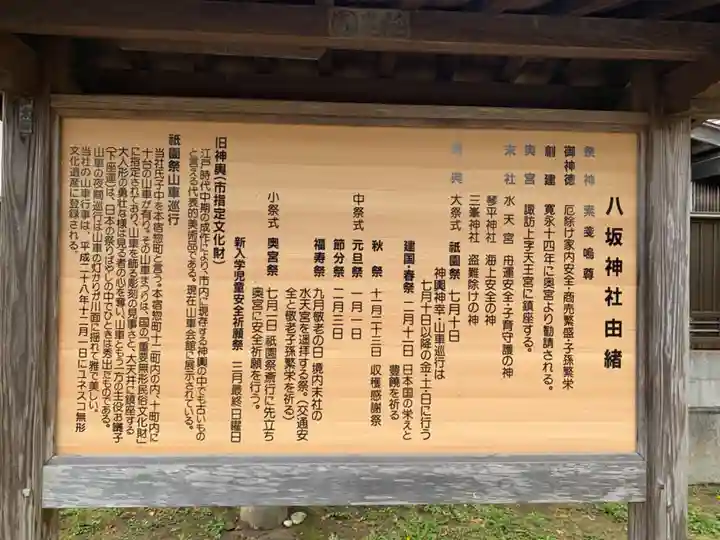 八坂神社由緒
祭神 素戔嗚尊
御神徳 厄除け家内安全・商売繁盛・子孫繁栄
創建 寛永十四年に奥宮より勧請される。
奥宮 諏訪上字天王宮に鎮座する。
末社 水天宮 舟運安全・子育守護の神
琴平神社 海上安全の神
三峯神社 盗難除けの神
大祭式 祇園祭 七月十日
神輿神幸・山車巡行は
七月十日以降の金・土・日に行う
建国・春祭 二月十日 日本国の栄えと
豊饒を祈る
秋祭 十一月二十三日 収穫感謝祭
中祭式 元旦祭 一月一日
節分祭 二月三日
福寿祭 九月敬老の日 境内末社の
水天宮を遥拝する祭。(交通安
全と敬老子孫繁栄を祈る)
小祭式 奥宮祭 七月一日 祇園祭斎行に先立ち
奥宮に安全祈願を行う。
新入学児童安全祈願祭 三月最終日曜日
旧神輿(市指定文化財)
江戸時代中期の成作により、市内に現存する神輿の中でも古いもの
と言える代表的美術品である。現在山車会館に展示されている。
祇園祭山車巡行
当社氏子中を本宿惣町と言う。本宿惣町十二町内の内、十町内に
十台の山車が有り。その山車まつりは、国の「重要無形民俗文化財」
に指定されており、山車を飾る彫刻の見事さと、大天井に鎮座する
大人形の勇壮な様は見る者の心を奪い、山車ともう一方の主役お囃子
(下座連)は、日本の祭りばやしの中でひときは秀出たものである。
山車の夜間巡行は山車の灯がりが川面に揺れて雅で美しい。
当社の山車行事は、平成二十八年十二月一日にユネスコ無形
文化遺産に登録される。